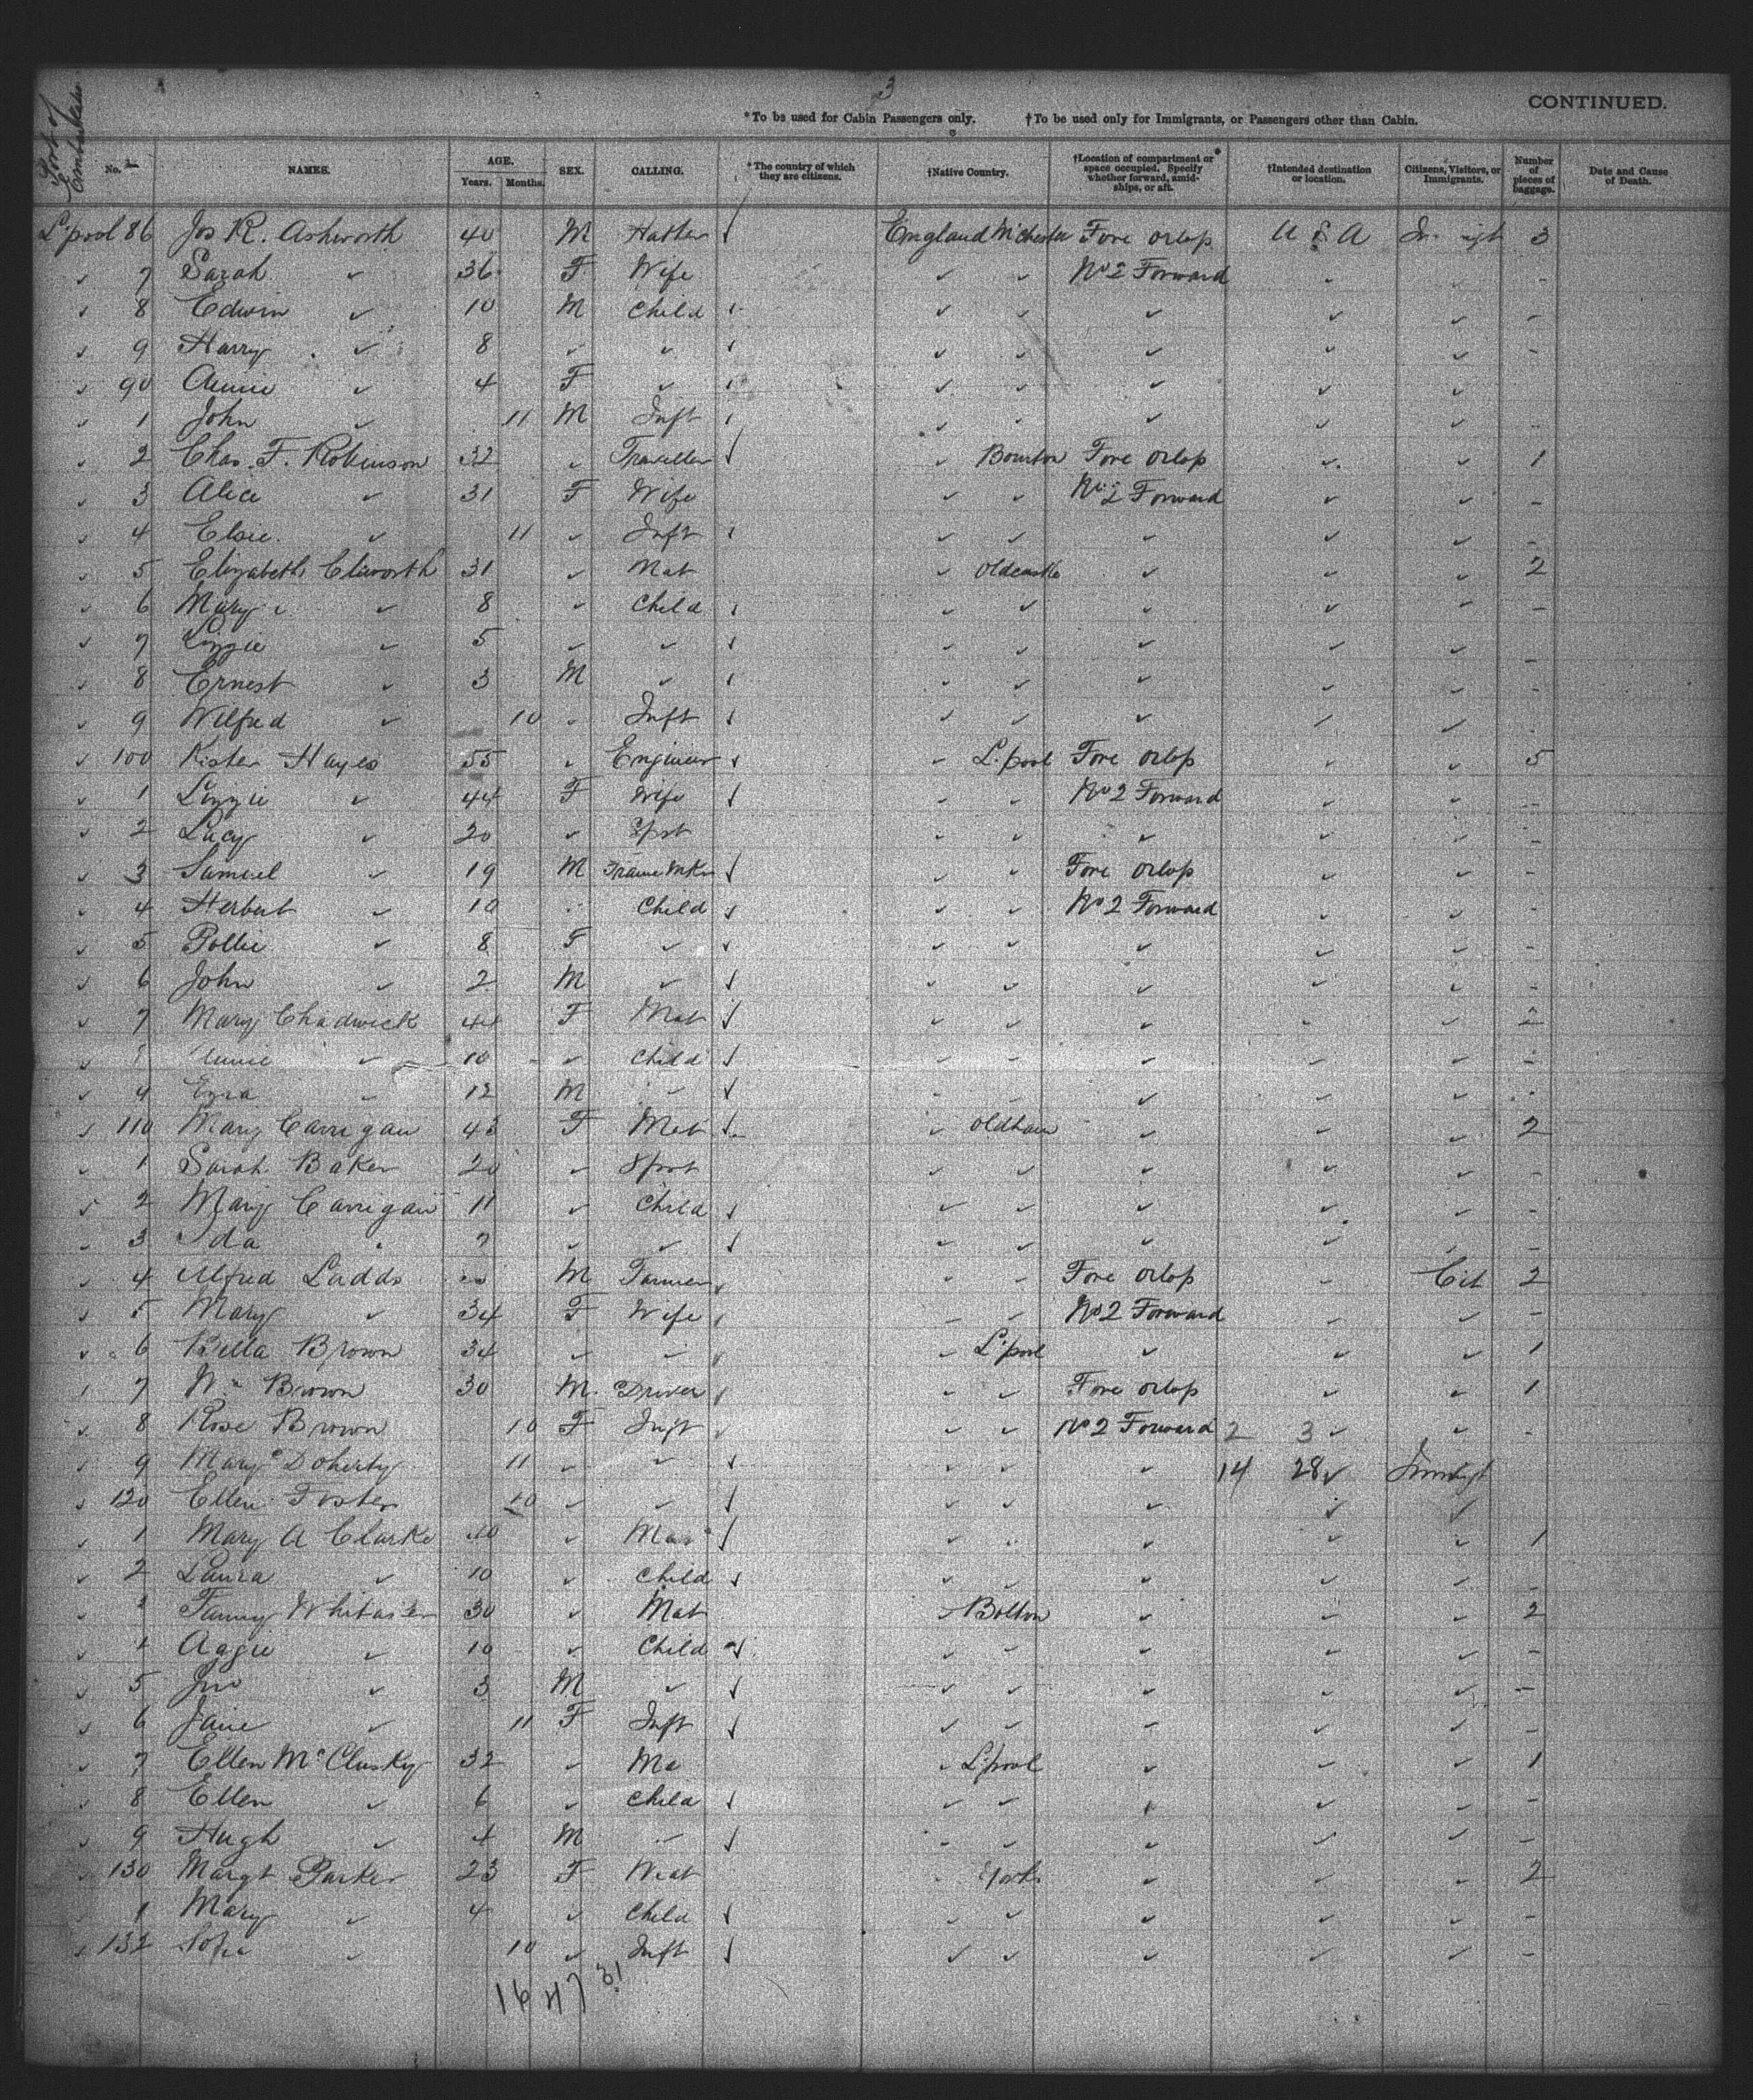 3
CONTINUED.
*To be used for Cabin Passengers only. †To be used only for Immigrants, or Passengers other than Cabin.
Port of Embarkation
No. NAMES. AGE. Years. Months. SEX. CALLING. *The country of which they are citizens. †Native Country. †Location of compartment or space occupied. Specify whether forward, amidships, or aft. †Intended destination or location. Citizens, Visitors, or Immigrants. Number of pieces of baggage. Date and Cause of Death.
L'pool 86 Jos R. Ashworth 40 M Hatter √ England M'chester Fore orlop U S A 3
✓ 7 Sarah ✓ 36 F Wife ✓ ✓ No 2 Forward ✓ ✓ -
✓ 8 Edwin ✓ 10 M Child ✓ ✓ ✓ ✓ ✓ -
✓ 9 Harry ✓ 8 ✓ ✓ ✓ ✓ ✓ ✓ ✓ -
✓ 90 Annie ✓ 4 F ✓ ✓ ✓ ✓ ✓ ✓ -
✓ 1 John ✓ 11 M Inft ✓ ✓ ✓ ✓ ✓ -
✓ 2 Chas. F. Robinson 32 ✓ Traveller √ ✓ Bourton Fore orlop ✓ ✓ 1
✓ 3 Alice ✓ 31 F Wife ✓ ✓ No 2 Forward ✓ ✓ -
✓ 4 Elsie ✓ 11 ✓ Inft ✓ ✓ ✓ ✓ ✓ -
✓ 5 Elizabeth 31 ✓ Mat ✓ Oldcastle ✓ ✓ ✓ 2
✓ 6 Mary ✓ 8 ✓ Child ✓ ✓ ✓ ✓ ✓ -
✓ 7 Lizzie ✓ 5 ✓ ✓ ✓ ✓ ✓ ✓ ✓ -
✓ 8 Ernest ✓ 3 M ✓ ✓ ✓ ✓ ✓ ✓ -
✓ 9 Wilfred ✓ 10 ✓ Inft ✓ ✓ ✓ ✓ ✓ -
✓ 100 Hayes 55 ✓ Engineer ✓ ✓ L'pool Fore orlop ✓ ✓ 5
✓ 1 Lizzie ✓ 44 F Wife ✓ ✓ No 2 Forward ✓ ✓ -
✓ 2 Lucy ✓ 20 ✓ Spst ✓ ✓ ✓ ✓ ✓ -
✓ 3 Samuel ✓ 19 M Frame Mkr √ ✓ ✓ Fore orlop ✓ ✓ -
✓ 4 Herbert ✓ 10 Child ✓ ✓ No 2 Forward ✓ ✓ -
✓ 5 Pollie ✓ 8 F ✓ ✓ ✓ ✓ ✓ ✓ -
✓ 6 John ✓ 2 M ✓ ✓ ✓ ✓ ✓ ✓ -
✓ 7 Mary Chadwick 44 F Mat √ ✓ ✓ ✓ ✓ ✓ 2
✓ 8 Annie ✓ 10 ✓ Child ✓ ✓ ✓ ✓ ✓ -
✓ 9 Ezra ✓ 12 M ✓ ✓ ✓ ✓ ✓ ✓ -
✓ 110 Mary Carrigan 43 F Mat ✓ ✓ Oldham ✓ ✓ ✓ 2
✓ 1 Sarah Baker 20 ✓ Spst ✓ ✓ ✓ ✓ ✓ -
✓ 2 Mary Carrigan 11 ✓ Child ✓ ✓ ✓ ✓ ✓ -
✓ 3 Ida 7 ✓ ✓ ✓ ✓ ✓ ✓ ✓ -
✓ 4 Alfred Ladds M Farmer ✓ ✓ Fore orlop ✓ Cit 2
✓ 5 Mary ✓ 34 F Wife ✓ ✓ No 2 Forward ✓ ✓ -
✓ 6 Bella Brown 34 ✓ ✓ ✓ L'pool ✓ ✓ ✓ 1
✓ 7 Wm Brown 30 M Driver ✓ ✓ Fore orlop ✓ ✓ 1
✓ 8 Rose Brown 10 F Inft ✓ ✓ No 2 Forward 2 3 ✓ ✓ -
✓ 9 Mary Doherty 11 ✓ ✓ ✓ ✓ ✓ 14 28 ✓ Immigt
✓ 120 Ellen Foster 10 ✓ ✓ ✓ ✓ ✓ ✓ ✓
✓ 1 Mary A Clarke 40 ✓ Mat ✓ ✓ ✓ ✓ ✓ 1
✓ 2 Laura ✓ 10 ✓ Child ✓ ✓ ✓ ✓ ✓ -
✓ 3 Fanny Whitaker 30 ✓ Mat ✓ Bolton ✓ ✓ ✓ 2
✓ 4 Aggie ✓ 10 ✓ Child ✓ ✓ ✓ ✓ ✓ -
✓ 5 Jno ✓ 3 M ✓ ✓ ✓ ✓ ✓ ✓ -
✓ 6 Jane ✓ 11 F Inft ✓ ✓ ✓ ✓ ✓ -
✓ 7 Ellen McClusky 32 ✓ Ma ✓ L'pool ✓ ✓ ✓ 1
✓ 8 Ellen ✓ 6 ✓ Child ✓ ✓ ✓ ✓ ✓ -
✓ 9 Hugh ✓ 4 M ✓ ✓ ✓ ✓ ✓ ✓ -
✓ 130 Margt Parker 23 F Mat ✓ York ✓ ✓ ✓ 2
✓ 1 Mary ✓ 4 ✓ Child ✓ ✓ ✓ ✓ ✓ -
✓ 132 ✓ 10 ✓ Inft ✓ ✓ ✓ ✓ ✓ -
16 47 31